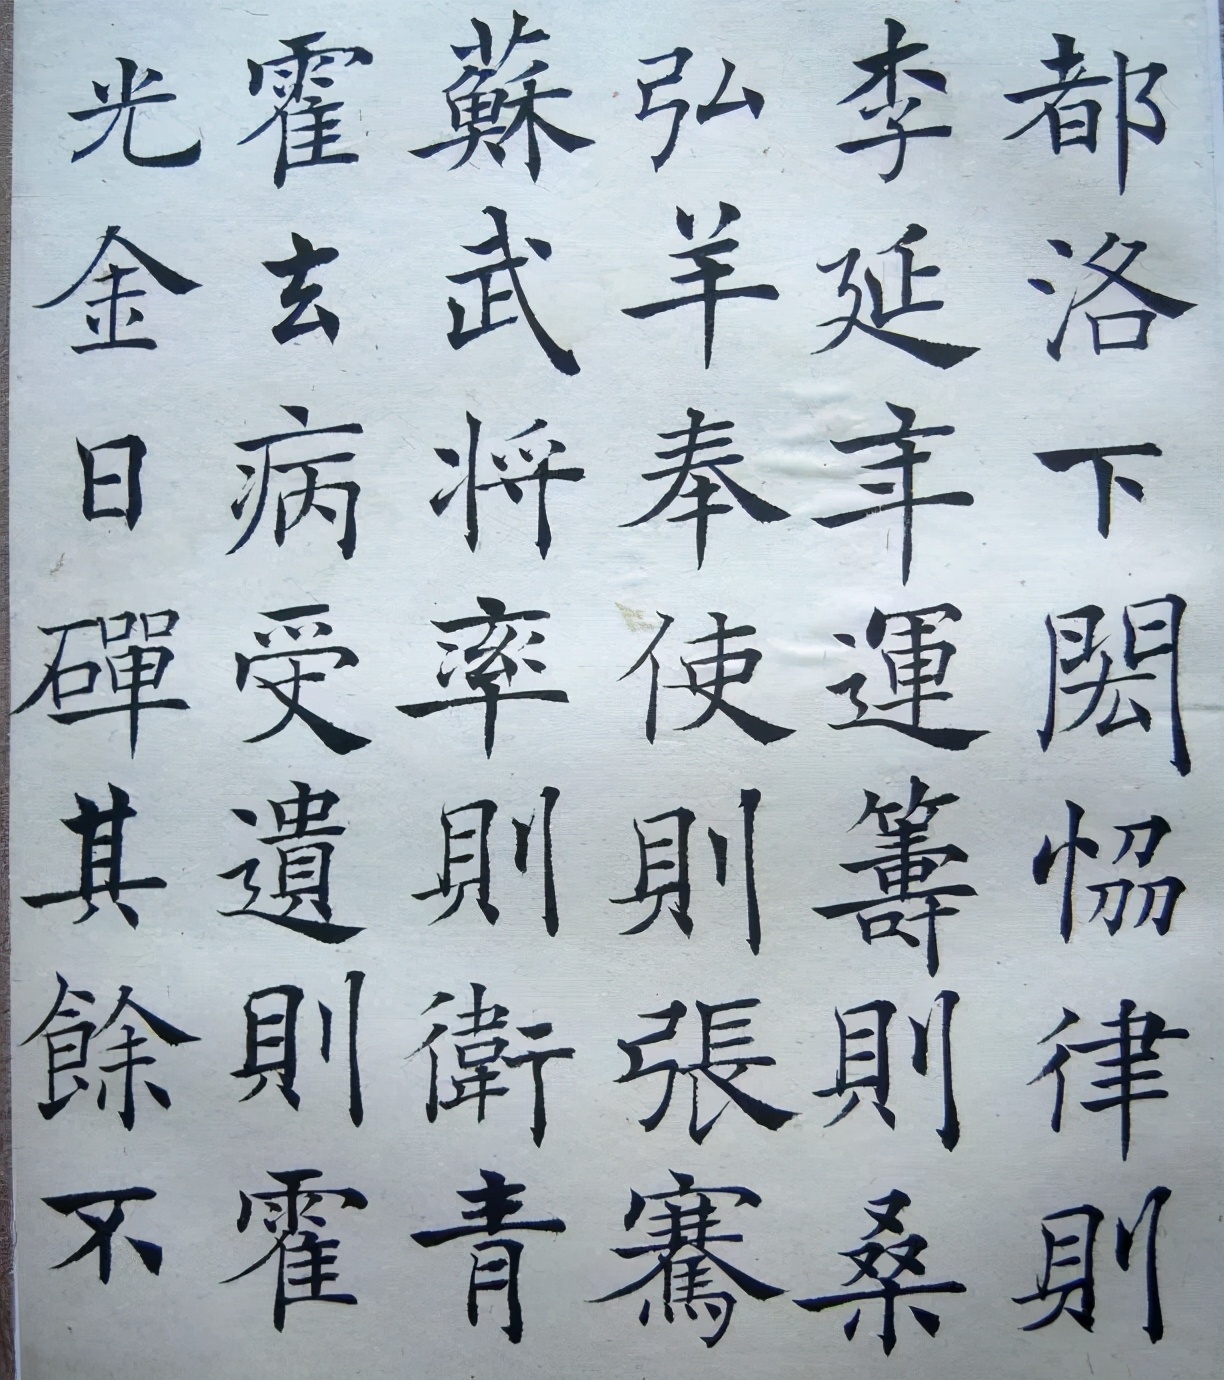 都洛下閎恊律則
李延年運籌則桑
弘羊奉使則張騫
蘇武将率則衛青
霍去病受遺則霍
光金日磾其餘不